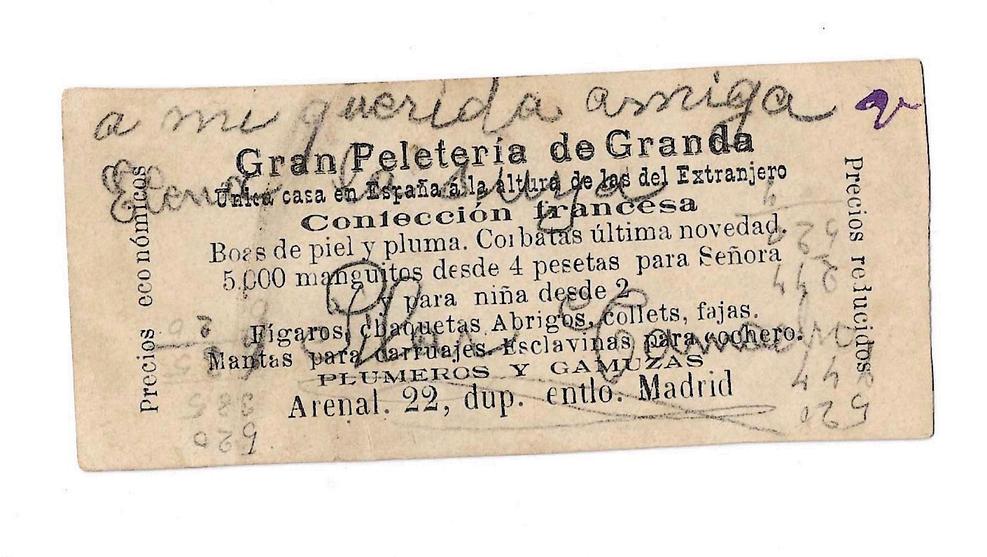 a mi querida amiga
Gran Peletería de Granda
Elena
Única casa en España a la altura de las del Extranjero
Confección francesa
Boas de piel y pluma. Corbatas última novedad.
5.000 manguitos desde 4 pesetas para Señora
y para niña desde 2
Fígaros, chaquetas Abrigos, collets, fajas.
Mantas para carruajes. Esclavinas para cochero.
PLUMEROS Y GAMUZAS
Arenal. 22, dup. entlo. Madrid
Precios económicos
Precios reducidos
Pilar
520
244
20
385
520
244
520